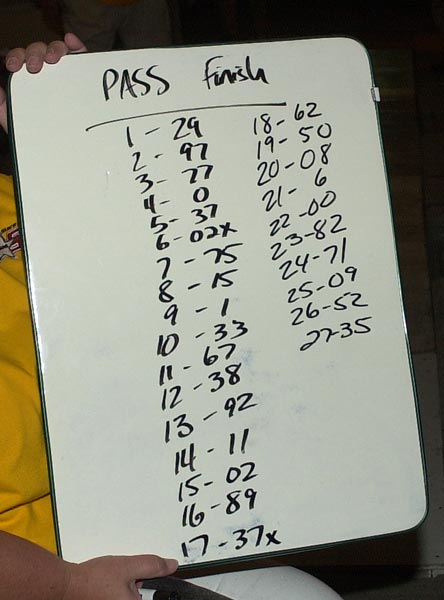 PASS Finish
1 - 29
2 - 97
3 - 77
4 - 0
5 - 37
6 - 02x
7 - 75
8 - 15
9 - 1
10 - 33
11 - 67
12 - 38
13 - 92
14 - 11
15 - 02
16 - 89
17 - 37x
18 - 62
19 - 50
20 - 08
21 - 6
22 - 00
23 - 82
24 - 71
25 - 09
26 - 52
27 - 35